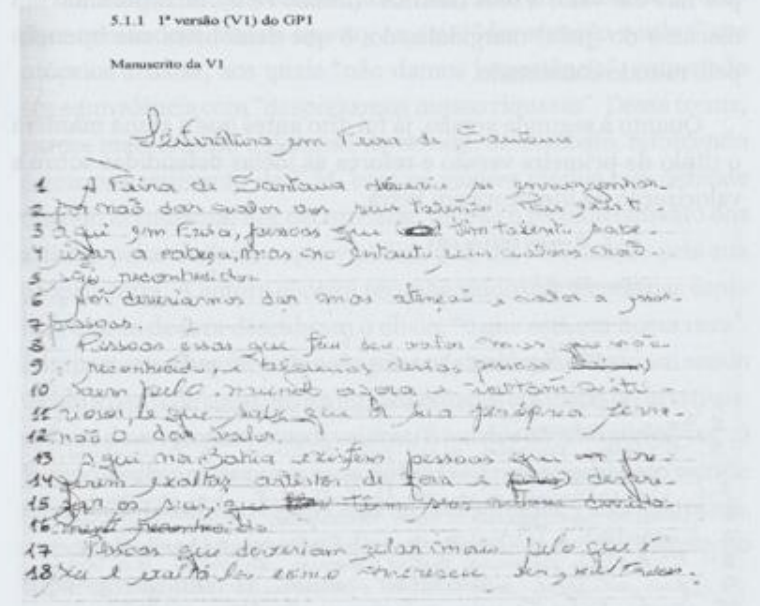 5.1.1 1ª versão (V1) do GP1
Manuscrito da V1
Literatura em Feira de Santana
1 A Feira de Santana deveria se envergonhar
2 por não dar valor aos seus talentos. Pois existe
3 aqui em Feira, pessoas que têm talento, sabe-
4 usar a cabeça, mas no entanto seus valores não
5 são reconhecidos
6 Nós deveriamos dar mas atenção e valor a
7 pessoas.
8 Pessoas essas que tem seu valor mas que não
9 é reconhecido, e dessas pessoas
10 saem pelo mundo afora e
11 que a sua própria terra
12 não o dar valor.
13 Aqui na Bahia existem pessoas que pre-
14 ferem exaltar artistas de fora e despre-
15 zar os seus, que têm seus valores devida-
16 mente reconhecido
17 Pessoas que deveriam zelar mais pelo que é
18 seu e exalta-los como merecem